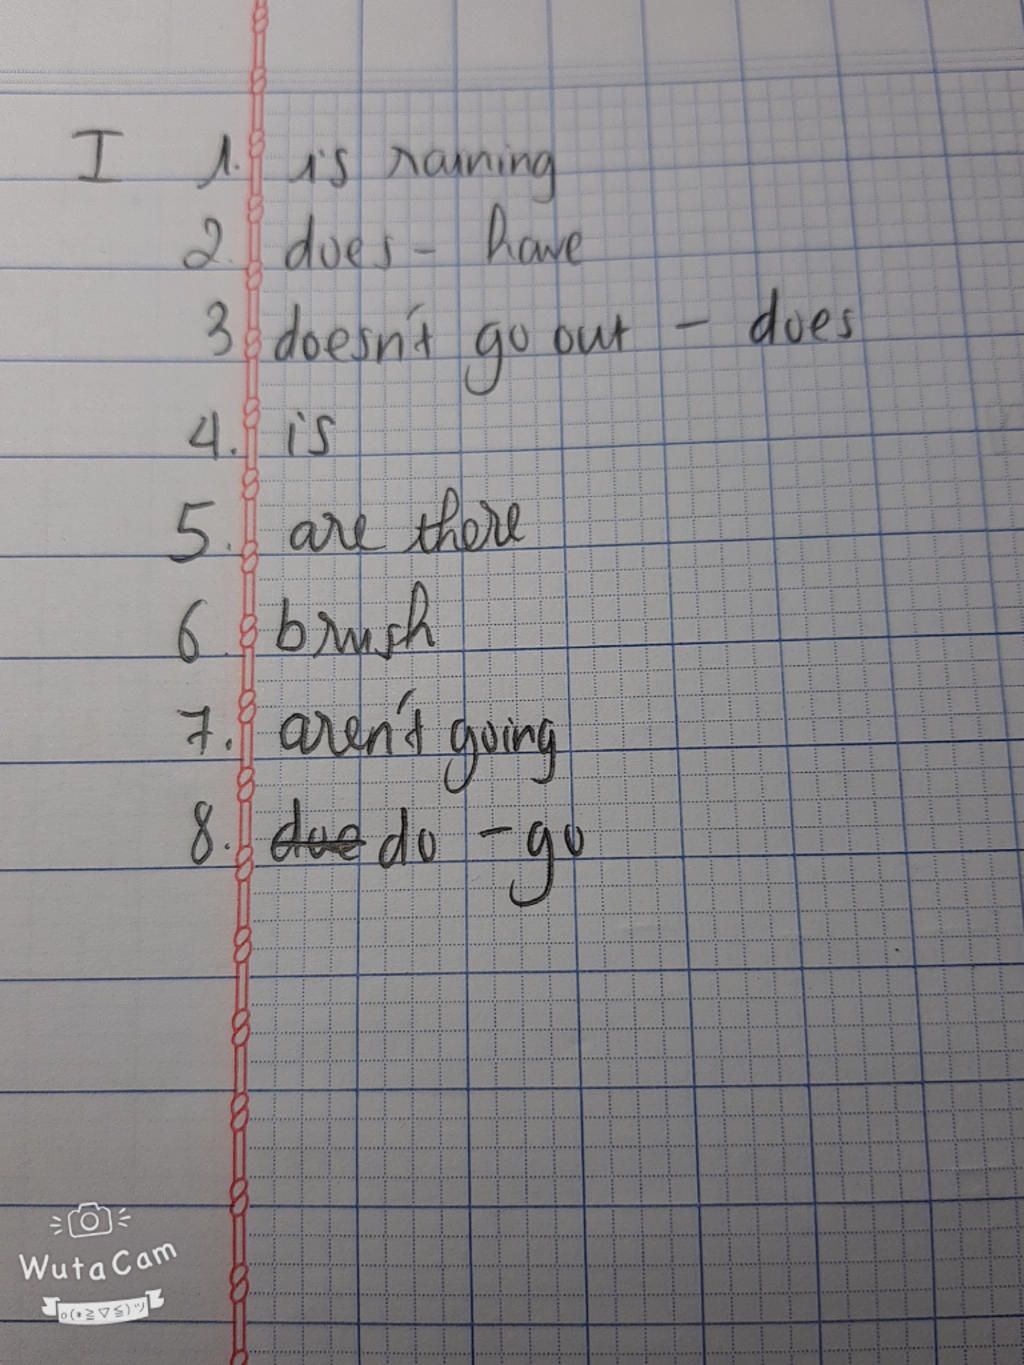 I 1. is raining
2. does - have
3 doesn't go out - does
4. is
5. are there
6. brush
7. aren't going
8. doe do - go
WutaCam
o(*≧▽≦)ツ